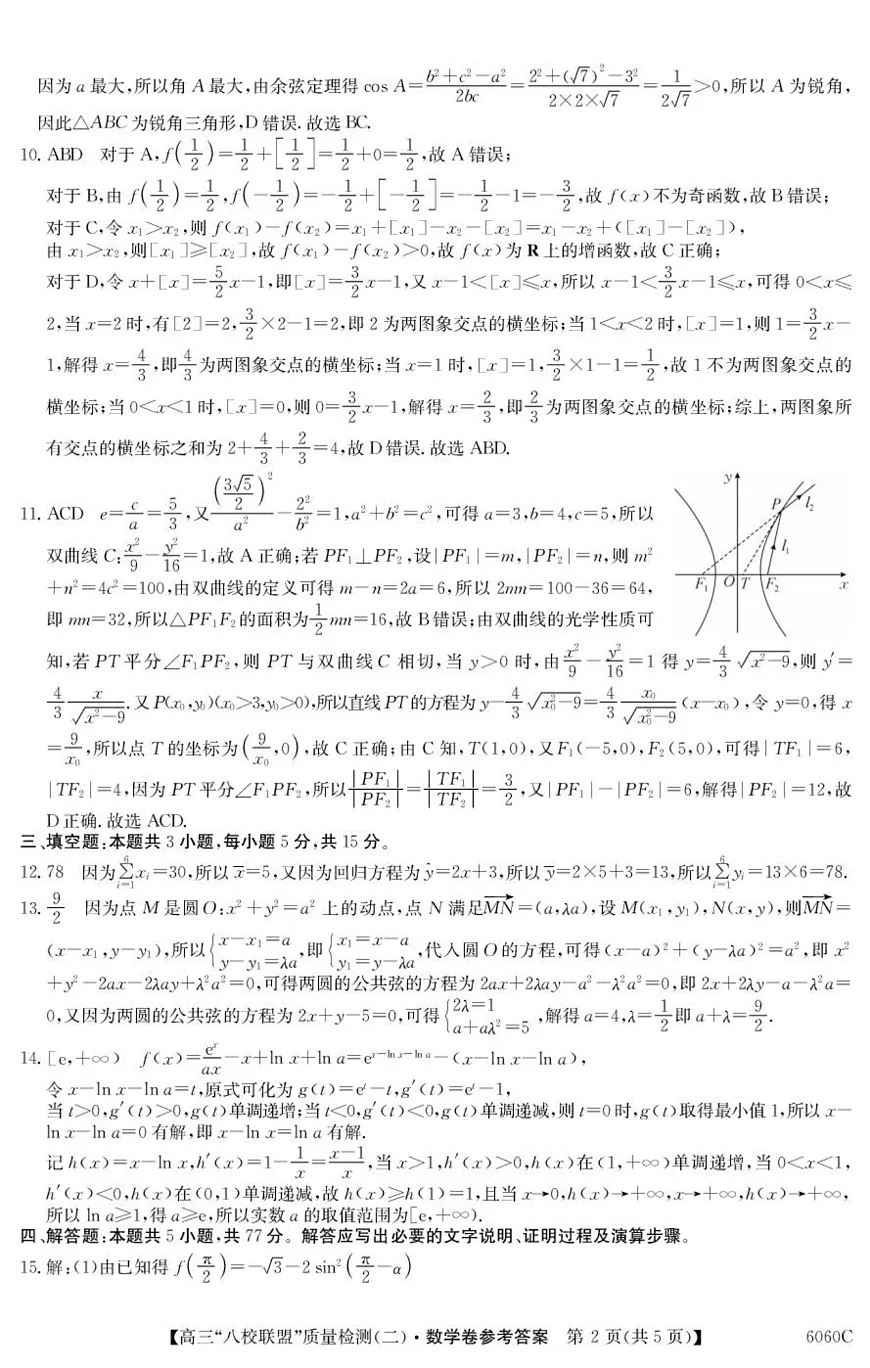 因为 a 最大,所以角 A 最大,由余弦定理得 cos A=\frac{b²+c²-a²}{2bc}=\frac{2²+(√7)²-3²}{2×2×√7}=\frac{1}{2√7}>0,所以 A 为锐角,
因此△ABC 为锐角三角形,D 错误. 故选 BC.
10. ABD 对于 A,f(\frac{1}{2})=\frac{1}{2}+[\frac{1}{2}]=\frac{1}{2}+0=\frac{1}{2},故 A 错误;
对于 B,由 f(\frac{1}{2})=\frac{1}{2},f(-\frac{1}{2})=-\frac{1}{2}+[-\frac{1}{2}]=-\frac{1}{2}-1=-\frac{3}{2},故 f(x)不为奇函数,故 B 错误;
对于 C,令 x₁>x₂,则 f(x₁)-f(x₂)=x₁+[x₁]-x₂-[x₂]=x₁-x₂+([x₁]-[x₂]),
由 x₁>x₂,则[x₁]≥[x₂],故 f(x₁)-f(x₂)>0,故 f(x)为 R 上的增函数,故 C 正确;
对于 D,令 x+[x]=\frac{5}{2}x-1,即[x]=\frac{3}{2}x-1,又 x-1<[x]≤x,所以 x-1<\frac{3}{2}x-1≤x,可得 0<x≤
2,当 x=2 时,有[2]=2,\frac{3}{2}×2-1=2,即 2 为两图象交点的横坐标;当 1<x<2 时,[x]=1,则 1=\frac{3}{2}x-
1,解得 x=\frac{4}{3},即\frac{4}{3}为两图象交点的横坐标;当 x=1 时,[x]=1,\frac{3}{2}×1-1=\frac{1}{2},故 1 不为两图象交点的
横坐标;当 0<x<1 时,[x]=0,则 0=\frac{3}{2}x-1,解得 x=\frac{2}{3},即\frac{2}{3}为两图象交点的横坐标;综上,两图象所
有交点的横坐标之和为 2+\frac{4}{3}+\frac{2}{3}=4,故 D 错误. 故选 ABD.
11. ACD e=\frac{c}{a}=\frac{5}{3},又\frac{(\frac{3√5}{2})²}{a²}-\frac{2²}{b²}=1,a²+b²=c²,可得 a=3,b=4,c=5,所以
双曲线 C:\frac{x²}{9}-\frac{y²}{16}=1,故 A 正确;若 PF₁⊥PF₂,设|PF₁|=m,|PF₂|=n,则 m²
+n²=4c²=100,由双曲线的定义可得 m-n=2a=6,所以 2mn=100-36=64,
即 mn=32,所以△PF₁F₂的面积为\frac{1}{2}mn=16,故 B 错误;由双曲线的光学性质可
y P l₂ l₁ F₁ O T F₂ x
知,若 PT 平分∠F₁PF₂,则 PT 与双曲线 C 相切,当 y>0 时,由\frac{x²}{9}-\frac{y²}{16}=1 得 y=\frac{4}{3}√(x²-9),则 y′=
\frac{4}{3}\frac{x}{√(x²-9)}. 又 P(x₀,y₀)(x₀>3,y₀>0),所以直线 PT 的方程为 y-\frac{4}{3}√(x₀²-9)=\frac{4}{3}\frac{x₀}{√(x₀²-9)}(x-x₀),令 y=0,得 x
=\frac{9}{x₀},所以点 T 的坐标为(\frac{9}{x₀},0),故 C 正确;由 C 知,T(1,0),又F₁(-5,0),F₂(5,0),可得|TF₁|=6,
|TF₂|=4,因为 PT 平分∠F₁PF₂,所以\frac{|PF₁|}{|PF₂|}=\frac{|TF₁|}{|TF₂|}=\frac{3}{2},又|PF₁|-|PF₂|=6,解得|PF₂|=12,故
D 正确. 故选 ACD.
三、填空题:本题共 3 小题,每小题 5 分,共 15 分。
12. 78 因为\sum_{i=1}^{6}xᵢ=30,所以 x̄=5,又因为回归方程为 ŷ=2x+3,所以 ȳ=2×5+3=13,所以\sum_{i=1}^{6}yᵢ=13×6=78.
13. \frac{9}{2} 因为点 M 是圆 O:x²+y²=a² 上的动点,点 N 满足\overrightarrow{MN}=(a,λa),设 M(x₁,y₁),N(x,y),则\overrightarrow{MN}=
(x-x₁,y-y₁),所以{x-x₁=a y-y₁=λa,即{x₁=x-a y₁=y-λa,代入圆 O 的方程,可得(x-a)²+(y-λa)²=a²,即 x²
+y²-2ax-2λay+λ²a²=0,可得两圆的公共弦的方程为 2ax+2λay-a²-λ²a²=0,即 2x+2λy-a-λ²a=
0,又因为两圆的公共弦的方程为 2x+y-5=0,可得{2λ=1 a+aλ²=5,解得 a=4,λ=\frac{1}{2}即 a+λ=\frac{9}{2}.
14. [e,+∞) f(x)=\frac{eˣ}{ax}-x+ln x+ln a=e^{x-ln x-ln a}-(x-ln x-ln a),
令 x-ln x-ln a=t,原式可化为 g(t)=eᵗ-t,g′(t)=eᵗ-1,
当 t>0,g′(t)>0,g(t)单调递增;当 t<0,g′(t)<0,g(t)单调递减,则 t=0 时,g(t)取得最小值 1,所以 x-
ln x-ln a=0 有解,即 x-ln x=ln a 有解.
记 h(x)=x-ln x,h′(x)=1-\frac{1}{x}=\frac{x-1}{x},当 x>1,h′(x)>0,h(x)在(1,+∞)单调递增,当 0<x<1,
h′(x)<0,h(x)在(0,1)单调递减,故 h(x)≥h(1)=1,且当 x→0,h(x)→+∞,x→+∞,h(x)→+∞,
所以 ln a≥1,得 a≥e,所以实数 a 的取值范围为[e,+∞).
四、解答题:本题共 5 小题,共 77 分。解答应写出必要的文字说明、证明过程及演算步骤。
15. 解:(1)由已知得 f(\frac{π}{2})=-√3-2 sin²(\frac{π}{2}-α)
【高三“八校联盟”质量检测(二)·数学卷参考答案 第 2 页(共 5 页)】 6060C